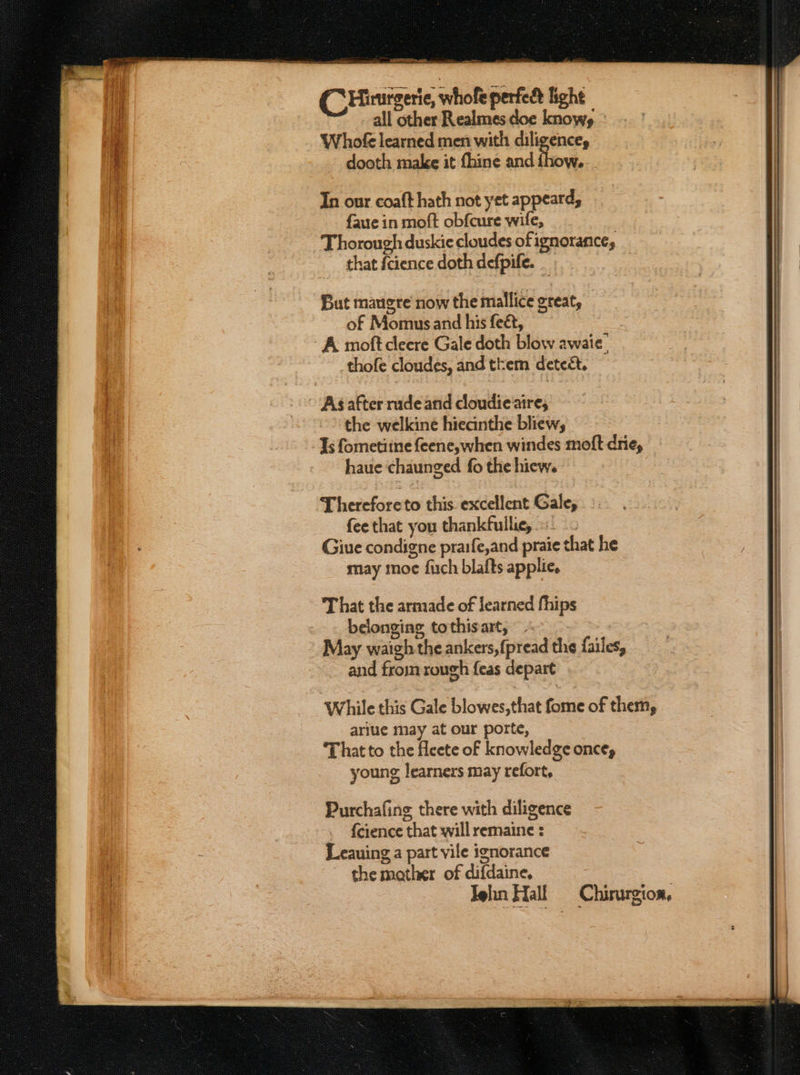 CHirurgerie, whoſe perfect light
all other Realmes doe know,
Whoſe learned men with diligence,
dooth make it ſhine and ſhow.
In our coaſt hath not yet appeard,
ſaue in moſt obſcure wiſe,
Thorough duskie cloudes of ignorance,
that ſcience doth deſpiſe.
But maugre now the mallice great,
of Momus and his ſect,
A moſt cleere Gale doth blow awaie
thoſe cloudes, and them detect.
As after rude and cloudie aire,
the welkine hiecinthe bliew,
Is ſometime ſeene, when windes moſt drie,
haue chaunged ſo the hiew.
Therefore to this excellent Gale,
ſee that you thankfullie,
Giue condigne praiſe, and praie that he
may moe ſuch blaſts applie.
That the armade of learned ſhips
belonging to this art,
May waigh the ankers, ſpread the ſailes,
and from rough ſeas depart
While this Gale blowes, that ſome of them,
ariue may at our porte,
That to the fleete of knowledge once,
young learners may reſort.
Purchaſing there with diligence
ſcience that will remaine:
Leauing a part vile ignorance
the mother of diſdaine.
Iohn Hall Chirurgion.